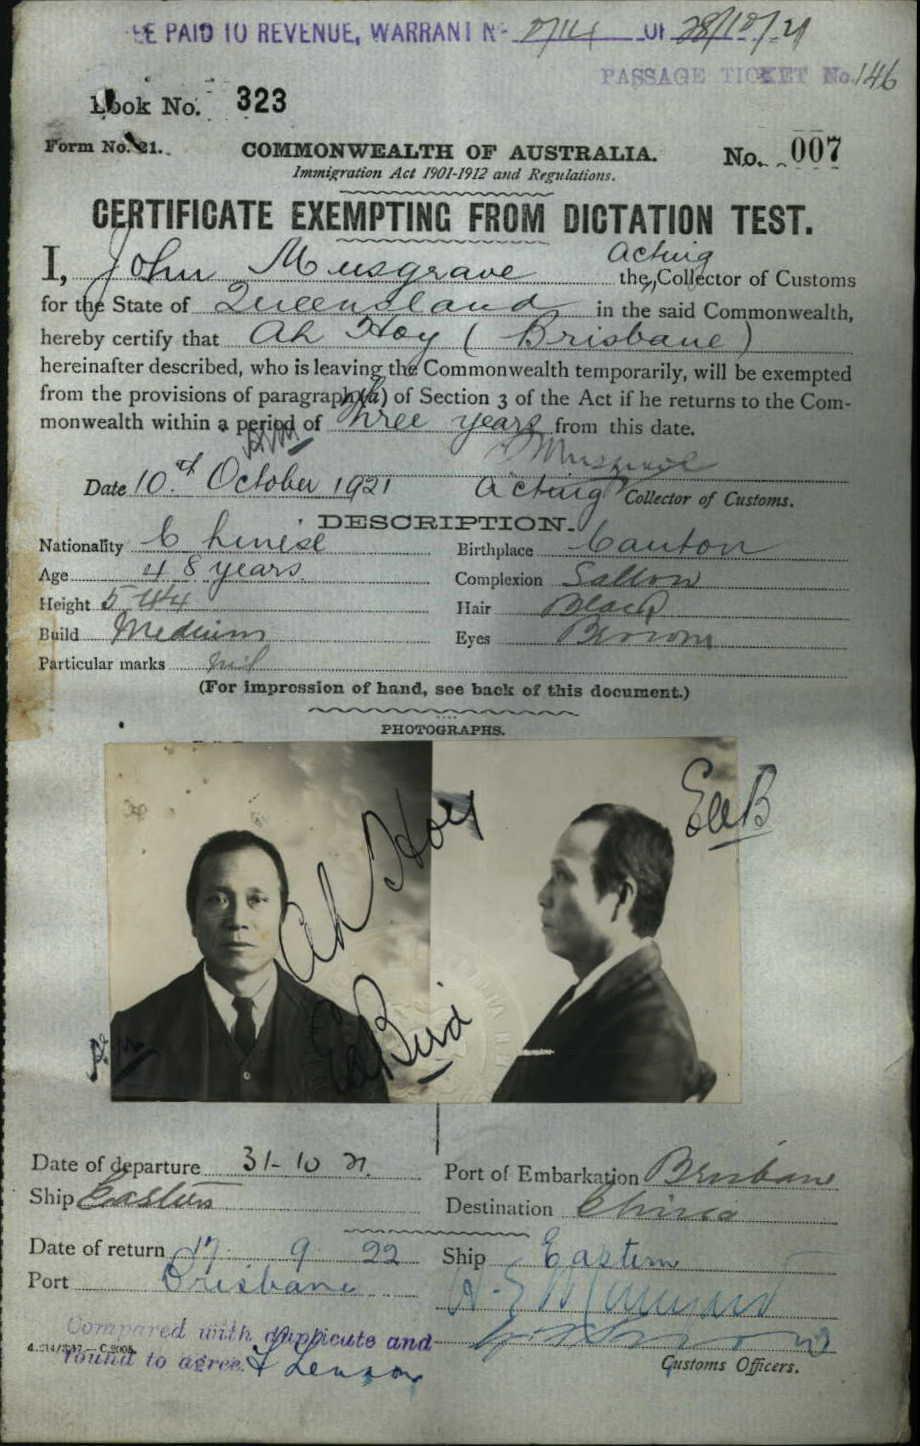 FEE PAID TO REVENUE, WARRANT No of 28/10/21
PASSAGE TICKET No. 146
Book No. 323
Form No. 21.
COMMONWEALTH OF AUSTRALIA.
No. 007
Immigration Act 1901-1912 and Regulations.
CERTIFICATE EXEMPTING FROM DICTATION TEST.
I, John Musgrave the Acting Collector of Customs
for the State of Queensland in the said Commonwealth,
hereby certify that Ah Hoy (Brisbane)
hereinafter described, who is leaving the Commonwealth temporarily, will be exempted
from the provisions of paragraph (a) of Section 3 of the Act if he returns to the Com-
monwealth within a period of three years from this date.
J Musgrave
Date 10th October 1921 Acting Collector of Customs.
DESCRIPTION.
Nationality Chinese Birthplace Canton
Age 48 years Complexion Sallow
Height 5' 4¼ Hair Black
Build Medium Eyes Brown
Particular marks nil
(For impression of hand, see back of this document.)
PHOTOGRAPHS.
Ah Hoy
EeB
Ee Bird
Date of departure 31-10 21. Port of Embarkation Brisbane
Ship Eastern Destination China
Date of return 17. 9. 22 Ship Eastern
Port Brisbane
Compared with duplicate and
found to agree.
Customs Officers.